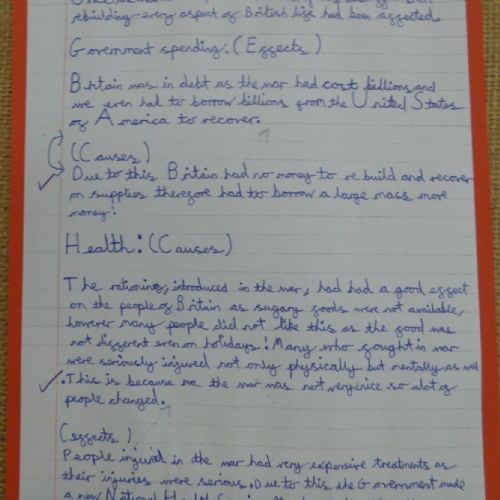 rebuilding every aspect of British life had been affected.
Government spending: (Effects)
Britain was in debt as the war had cost billions and
we even had to borrow billions from the United States
of America to recover.
(Causes)
Due to this Britain had no money to re build and recover
on supplies therefore had to borrow a large mass more
money!
Health: (Causes)
The rationing, introduced in the war, had had a good effect
on the people of Britain as sugary goods were not available,
however many people did not like this as the food was
not different even on holidays! Many who fought in war
were seriously injured not only physically but mentally as well
. This is because the war was not very nice so alot of
people changed.
(effects)
People injured in the war had very expensive treatments as
their injuries were serious. Due to this the Government made
a new National Health